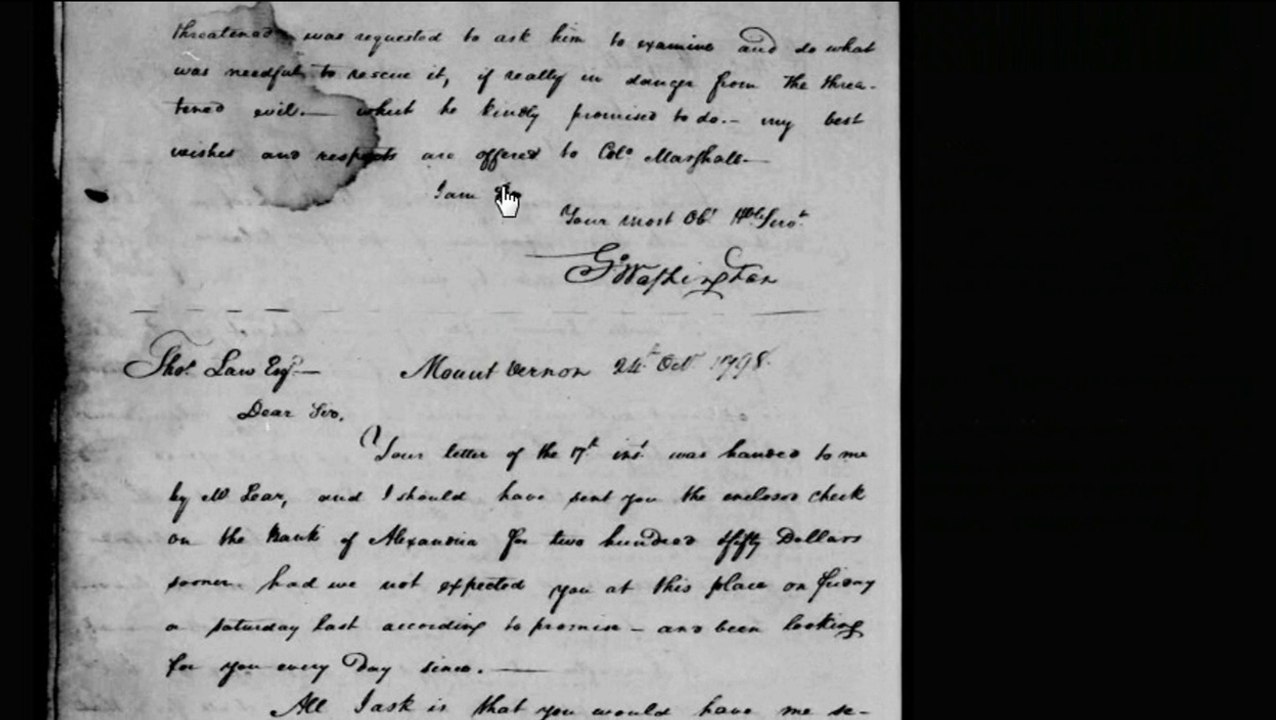 threatened was requested to ask him to examine and do what
was needful to rescue it, if really in danger from the threa-
tened evil.— which he kindly promised to do.— my best
wishes and respects are offered to Colo Marshall.—
I am
Your most Obt Hble Servt
Go Washington
Thos Law Esqr— Mount Vernon 24th Octr 1798.
Dear Sir,
Your letter of the 17t inst was handed to me
by Mr Lear, and I should have sent you the enclosed check
on the Bank of Alexandria for two hundred & fifty Dollars
sooner had we not expected you at this place on friday
or saturday last according to promise – and been looking
for you every Day since. —
All I ask is that you would have me se-